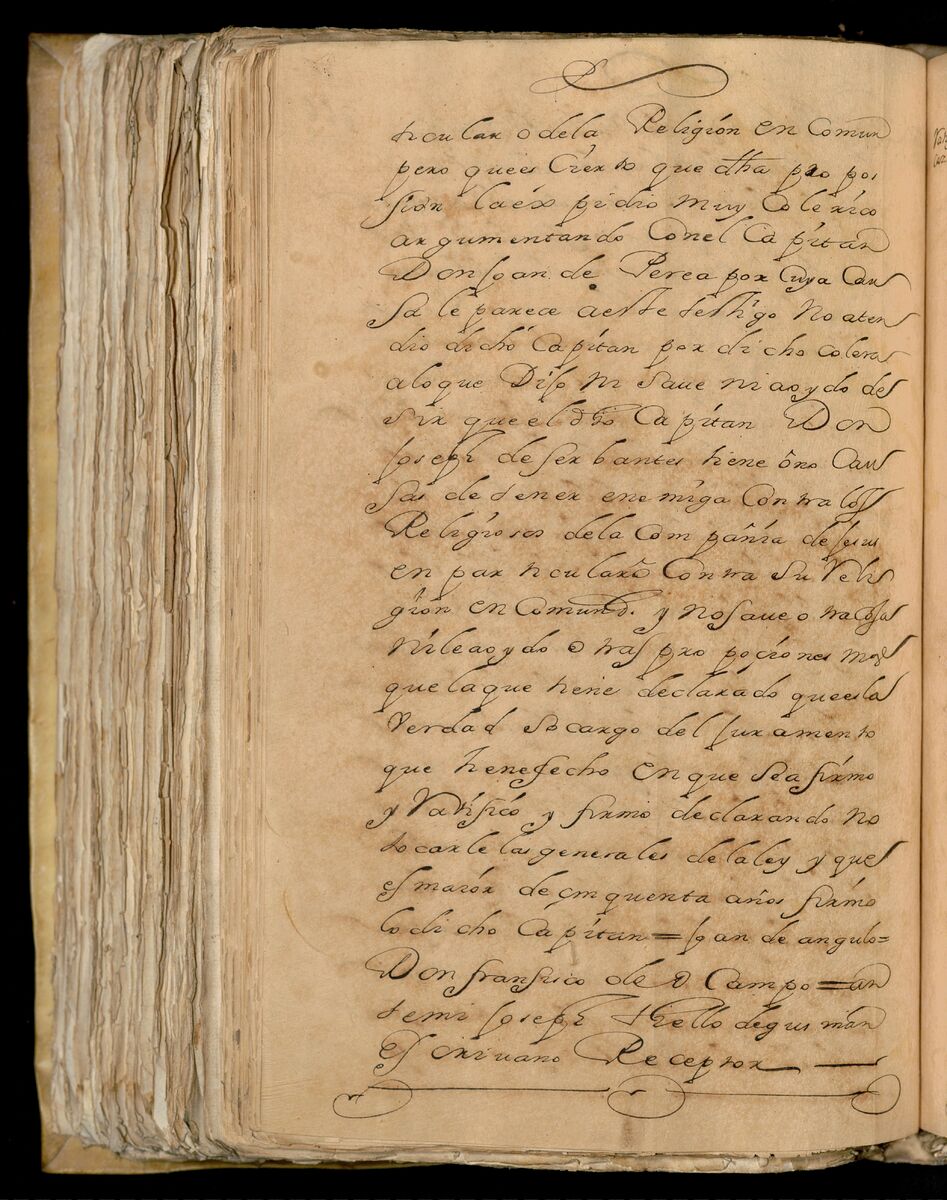 ticular o dela Religión en Comun
pero quees Cierto que dha pro po
sision la éx pidio muy Colerico
argumentando Conel Capitan
Don Joan de Perea por Cuya Cau
sa le parece aeste testigo No aten
dio dicho Capitan por dicho colera
aloque Dijo Ni save ni ao ydo de
sir que el dho Capitan Don
Joseph de serbantes tiene o no Cau
sas de tener enemiga Contra los
Religiosos dela Compañia de Jesus
en par ticular o Contra Su Reli
gion en Comun y no save otra Cosa
Nile ao ydo otras pro posiones mas
que laque tiene declarado queesla
Verdad so cargo del Juramento
que tiene fecho en que se afirmo
y Ratifico y firmo declarando No
tocarle las generales dela ley y que
es maior de cinquenta años firmo
lo dicho Capitan = Joan de angulo =
Don fransisco de O Campo = an
temi Joseph thello de gusman
Es crivano Receptor